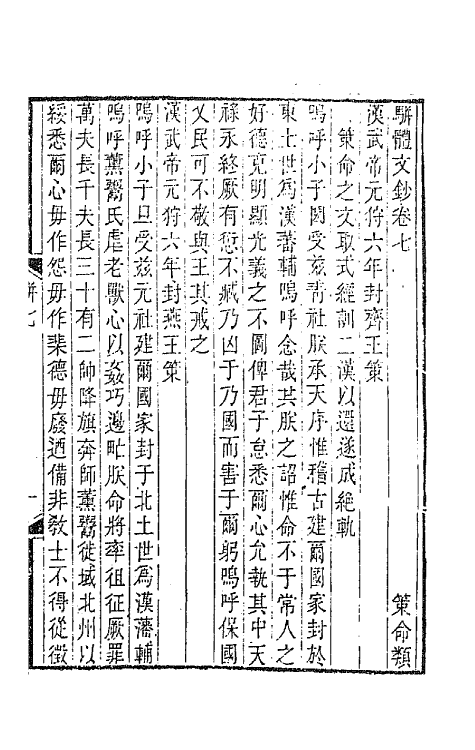 駢體文鈔卷七 策命類
漢武帝元狩六年封齊王策
策命之文取式經訓二漢以還遂成絶軌
嗚呼小子閎受兹青社朕承天序惟稽古建爾國家封於
東土世爲漢藩輔嗚呼念哉其朕之詔惟命不于常人之
好德克明顯光義之不圖俾君子怠悉爾心允執其中天
祿永終厥有愆不臧乃凶于乃國而害于爾躬嗚呼保國
乂民可不敬與王其戒之
漢武帝元狩六年封燕王策
嗚呼小子旦受兹元社建爾國家封于北土世爲漢藩輔
嗚呼薰鬻氏虐老獸心以姦巧邊甿朕命將率徂征厥罪
萬夫長千夫長三十有二帥降旗奔師薰鬻徙域北州以
綏悉爾心毋作怨毋作棐德毋廢迺備非敎士不得從徵
駢七 一